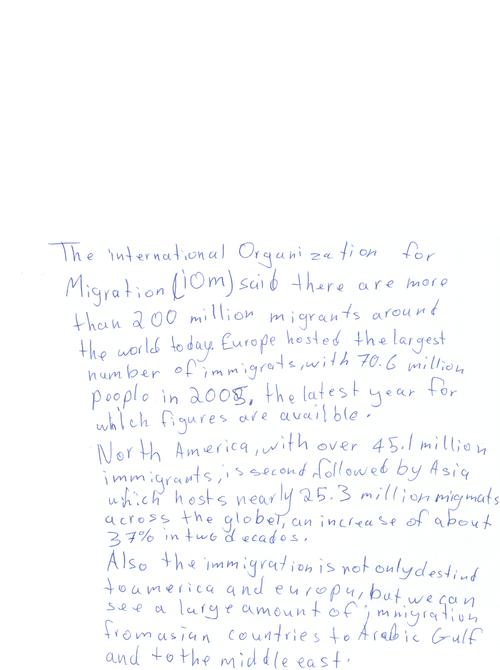 The international Organization for
Migration (iOm) said there are more
than 200 million migrants around
the world today. Europe hosted the largest
number of immigrats, with 70.6 million
poeplo in 2005, the latest year for
which figures are availble.
North America, with over 45.1 million
immigrants, is second followed by Asia
which hosts nearly 25.3 million migrnats
across the globet, an increase of about
37% in two decades.
Also the immigration is not only destind
to america and europu, but we can
see a large amount of imnigration
from asian countries to Arabic Gulf
and to the middle east.